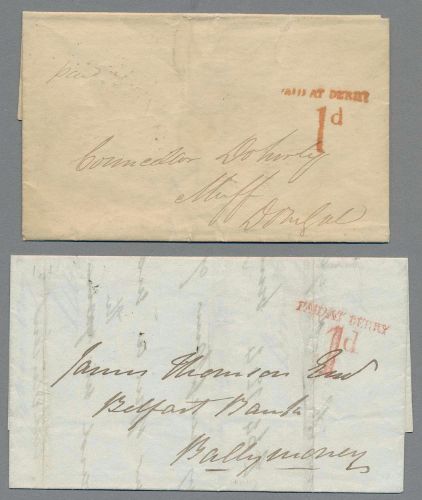 paid
PAID AT DERRY
1d
Councellor Doherty
Muff
Donegal
PAID AT DERRY
1d
James Thomson Esq
Belfast Bank
Ballymoney